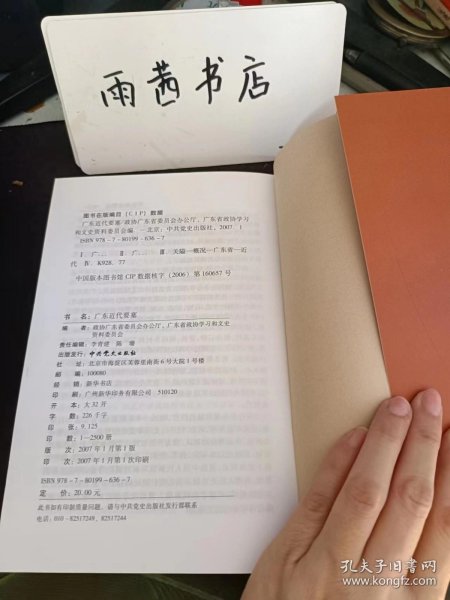 雨茜书店
图书在版编目(CIP)数据
广东近代要塞/政协广东省委员会办公厅、广东省政协学习
和文史资料委员会编.－北京:中共党史出版社,2007.1
ISBN 978－7－80199－636－7
Ⅰ.广… Ⅱ.广… Ⅲ.关隘—概况—广东省—近
代 Ⅳ.K928.77
中国版本图书馆 CIP 数据核字(2006)第 160657 号
书 名:广东近代要塞
编 者:政协广东省委员会办公厅、广东省政协学习和文史
资料委员会
责任编辑:李青建 陈
出版发行:中共党史出版社
社 址:北京市海淀区芙蓉里南街6号大院1号楼
邮 编:100080
经 销:新华书店
印 刷:广州新华印务有限公司 510120
开 本:大32开
字 数:226千字
印 张:9.125
印 数:1—2500册
版 次:2007年1月第1版
印 次:2007年1月第1次印刷
ISBN 978－7－80199－636－7
定 价:20.00元
此书如有印装质量问题,请与中共党史出版社发行部联系
电话:010－82517249、82517244
孔夫子旧书网
www.kongfz.com